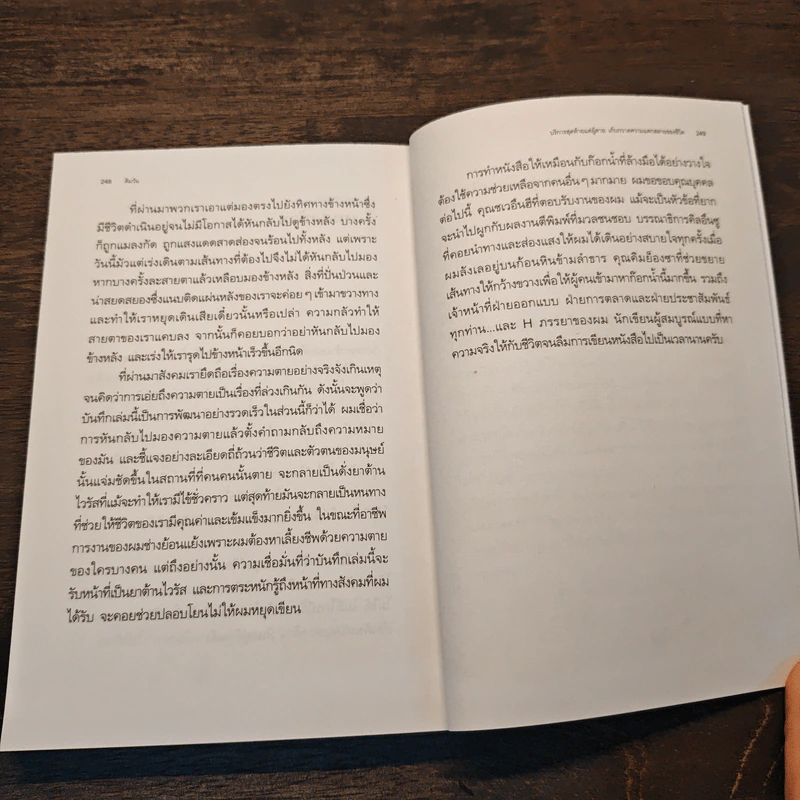 248 คิมวัน
ที่ผ่านมาพวกเราเอาแต่มองตรงไปยังทิศทางข้างหน้าซึ่ง
มีชีวิตดำเนินอยู่จนไม่มีโอกาสได้หันกลับไปดูข้างหลัง บางครั้ง
ก็ถูกแมลงกัด ถูกแสงแดดสาดส่องจนร้อนไปทั้งหลัง แต่เพราะ
วันนี้มัวแต่เร่งเดินตามเส้นทางที่ต้องไปจึงไม่ได้หันกลับไปมอง
หากบางครั้งละสายตาแล้วเหลือบมองข้างหลัง สิ่งที่ปั่นป่วนและ
น่าสยดสยองซึ่งแนบติดแผ่นหลังของเราจะค่อยๆ เข้ามาขวางทาง
และทำให้เราหยุดเดินเสียเดี๋ยวนั้นหรือเปล่า ความกลัวทำให้
สายตาของเราแคบลง จากนั้นก็คอยบอกว่าอย่าหันกลับไปมอง
ข้างหลัง และเร่งให้เรารุดไปข้างหน้าเร็วขึ้นอีกนิด
ที่ผ่านมาสังคมเรายึดถือเรื่องความตายอย่างจริงจังเกินเหตุ
จนคิดว่าการเอ่ยถึงความตายเป็นเรื่องที่ล่วงเกินกัน ดังนั้นจะพูดว่า
บันทึกเล่มนี้เป็นการพัฒนาอย่างรวดเร็วในส่วนนี้ก็ว่าได้ ผมเชื่อว่า
การหันกลับไปมองความตายแล้วตั้งคำถามกลับถึงความหมาย
ของมัน และชี้แจงอย่างละเอียดถี่ถ้วนว่าชีวิตและตัวตนของมนุษย์
นั้นแจ่มชัดขึ้นในสถานที่ที่คนคนนั้นตาย จะกลายเป็นดั่งยาต้าน
ไวรัสที่แม้จะทำให้เรามีไข้ชั่วคราว แต่สุดท้ายมันจะกลายเป็นหนทาง
ที่ช่วยให้ชีวิตของเรามีคุณค่าและเข้มแข็งมากยิ่งขึ้น ในขณะที่อาชีพ
การงานของผมช่างย้อนแย้งเพราะผมต้องหาเลี้ยงชีพด้วยความตาย
ของใครบางคน แต่ถึงอย่างนั้น ความเชื่อมั่นที่ว่าบันทึกเล่มนี้จะ
รับหน้าที่เป็นยาต้านไวรัส และการตระหนักรู้ถึงหน้าที่ทางสังคมที่ผม
ได้รับ จะคอยช่วยปลอบโยนไม่ให้ผมหยุดเขียน
บริการสุดท้ายแด่ผู้ตาย เก็บกวาดความแตกสลายของชีวิต 249
การทำหนังสือให้เหมือนกับก๊อกน้ำที่ล้างมือได้อย่างวางใจ
ต้องใช้ความช่วยเหลือจากคนอื่นๆ มากมาย ผมขอขอบคุณบุคคล
ต่อไปนี้ คุณชเวอึนฮีที่ตอบรับงานของผม แม้จะเป็นหัวข้อที่ยาก
จะนำไปผูกกับผลงานตีพิมพ์ที่มวลชนชอบ บรรณาธิการคิลอึนซู
ที่คอยนำทางและส่องแสงให้ผมได้เดินอย่างสบายใจทุกครั้งเมื่อ
ผมลังเลอยู่บนก้อนหินข้ามลำธาร คุณคิมย็องซาที่ช่วยขยาย
เส้นทางให้กว้างขวางเพื่อให้ผู้คนเข้ามาหาก๊อกน้ำนี้มากขึ้น รวมถึง
เจ้าหน้าที่ฝ่ายออกแบบ ฝ่ายการตลาดและฝ่ายประชาสัมพันธ์
ทุกท่าน...และ H ภรรยาของผม นักเขียนผู้สมบูรณ์แบบที่หา
ความจริงให้กับชีวิตจนลืมการเขียนหนังสือไปเป็นเวลานานครับ